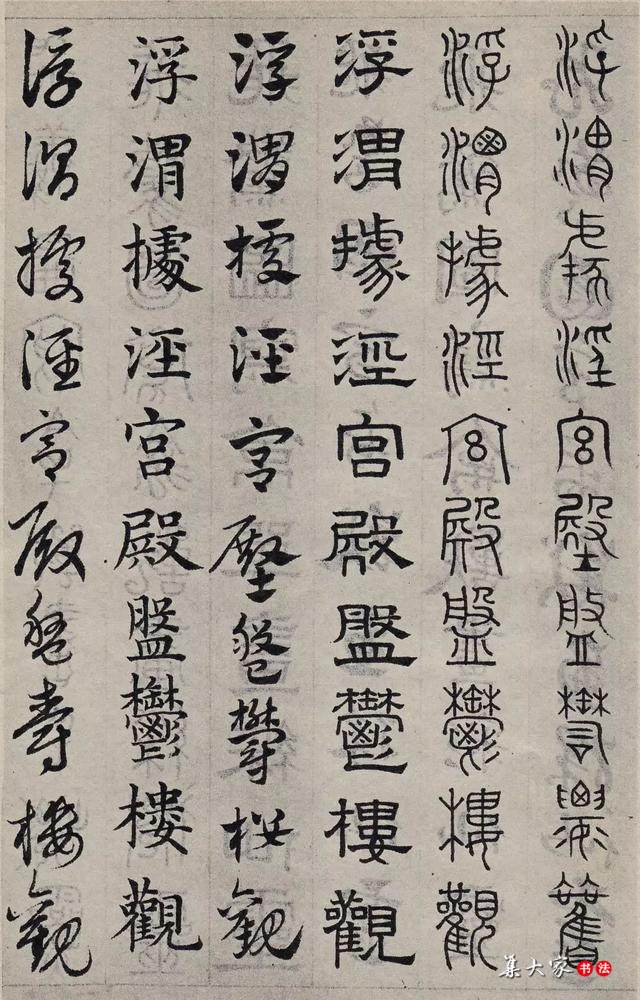 浮渭據涇宮殿盤鬱樓觀
浮渭據涇宮殿盤鬱樓觀
浮渭據涇宮殿盤鬱樓觀
浮渭據涇宮殿盤鬱樓觀
浮渭據涇宮殿盤鬱樓觀
浮渭據涇宮殿盤鬱樓觀
集大家书法